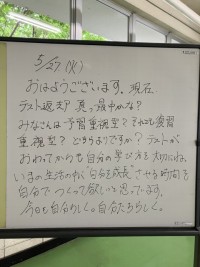 5/27 (火)
おはようございます。現在、
テスト返却? 真っ最中かな?
みなさんは“予習重視型”?それとも“復習
重視型”?どちらよりですか?テストが
おわってからも自分の学び方を大切にね。
いまの生活の中で“自分を成長”させる時間を
自分でつくって欲しいと思っています。
今日も自分らしく。自分たちらしく。